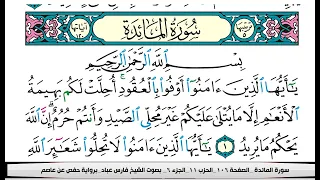 سُورَةُ المَائِدَةِ
بِسْمِ اللَّهِ الرَّحْمَٰنِ الرَّحِيمِ
يَا أَيُّهَا الَّذِينَ ءَامَنُوا أَوْفُوا بِالْعُقُودِ أُحِلَّتْ لَكُم بَهِيمَةُ
الْأَنْعَٰمِ إِلَّا مَا يُتْلَىٰ عَلَيْكُمْ غَيْرَ مُحِلِّي الصَّيْدِ وَأَنتُمْ حُرُمٌ إِنَّ اللَّهَ
يَحْكُمُ مَا يُرِيدُ ١ يَا أَيُّهَا الَّذِينَ ءَامَنُوا لَا تُحِلُّوا شَعَٰئِرَ اللَّهِ
سورة المائدة الصفحة ١٠٦ الحزب ١١ الجزء ٦ بصوت الشيخ فارس عباد برواية حفص عن عاصم